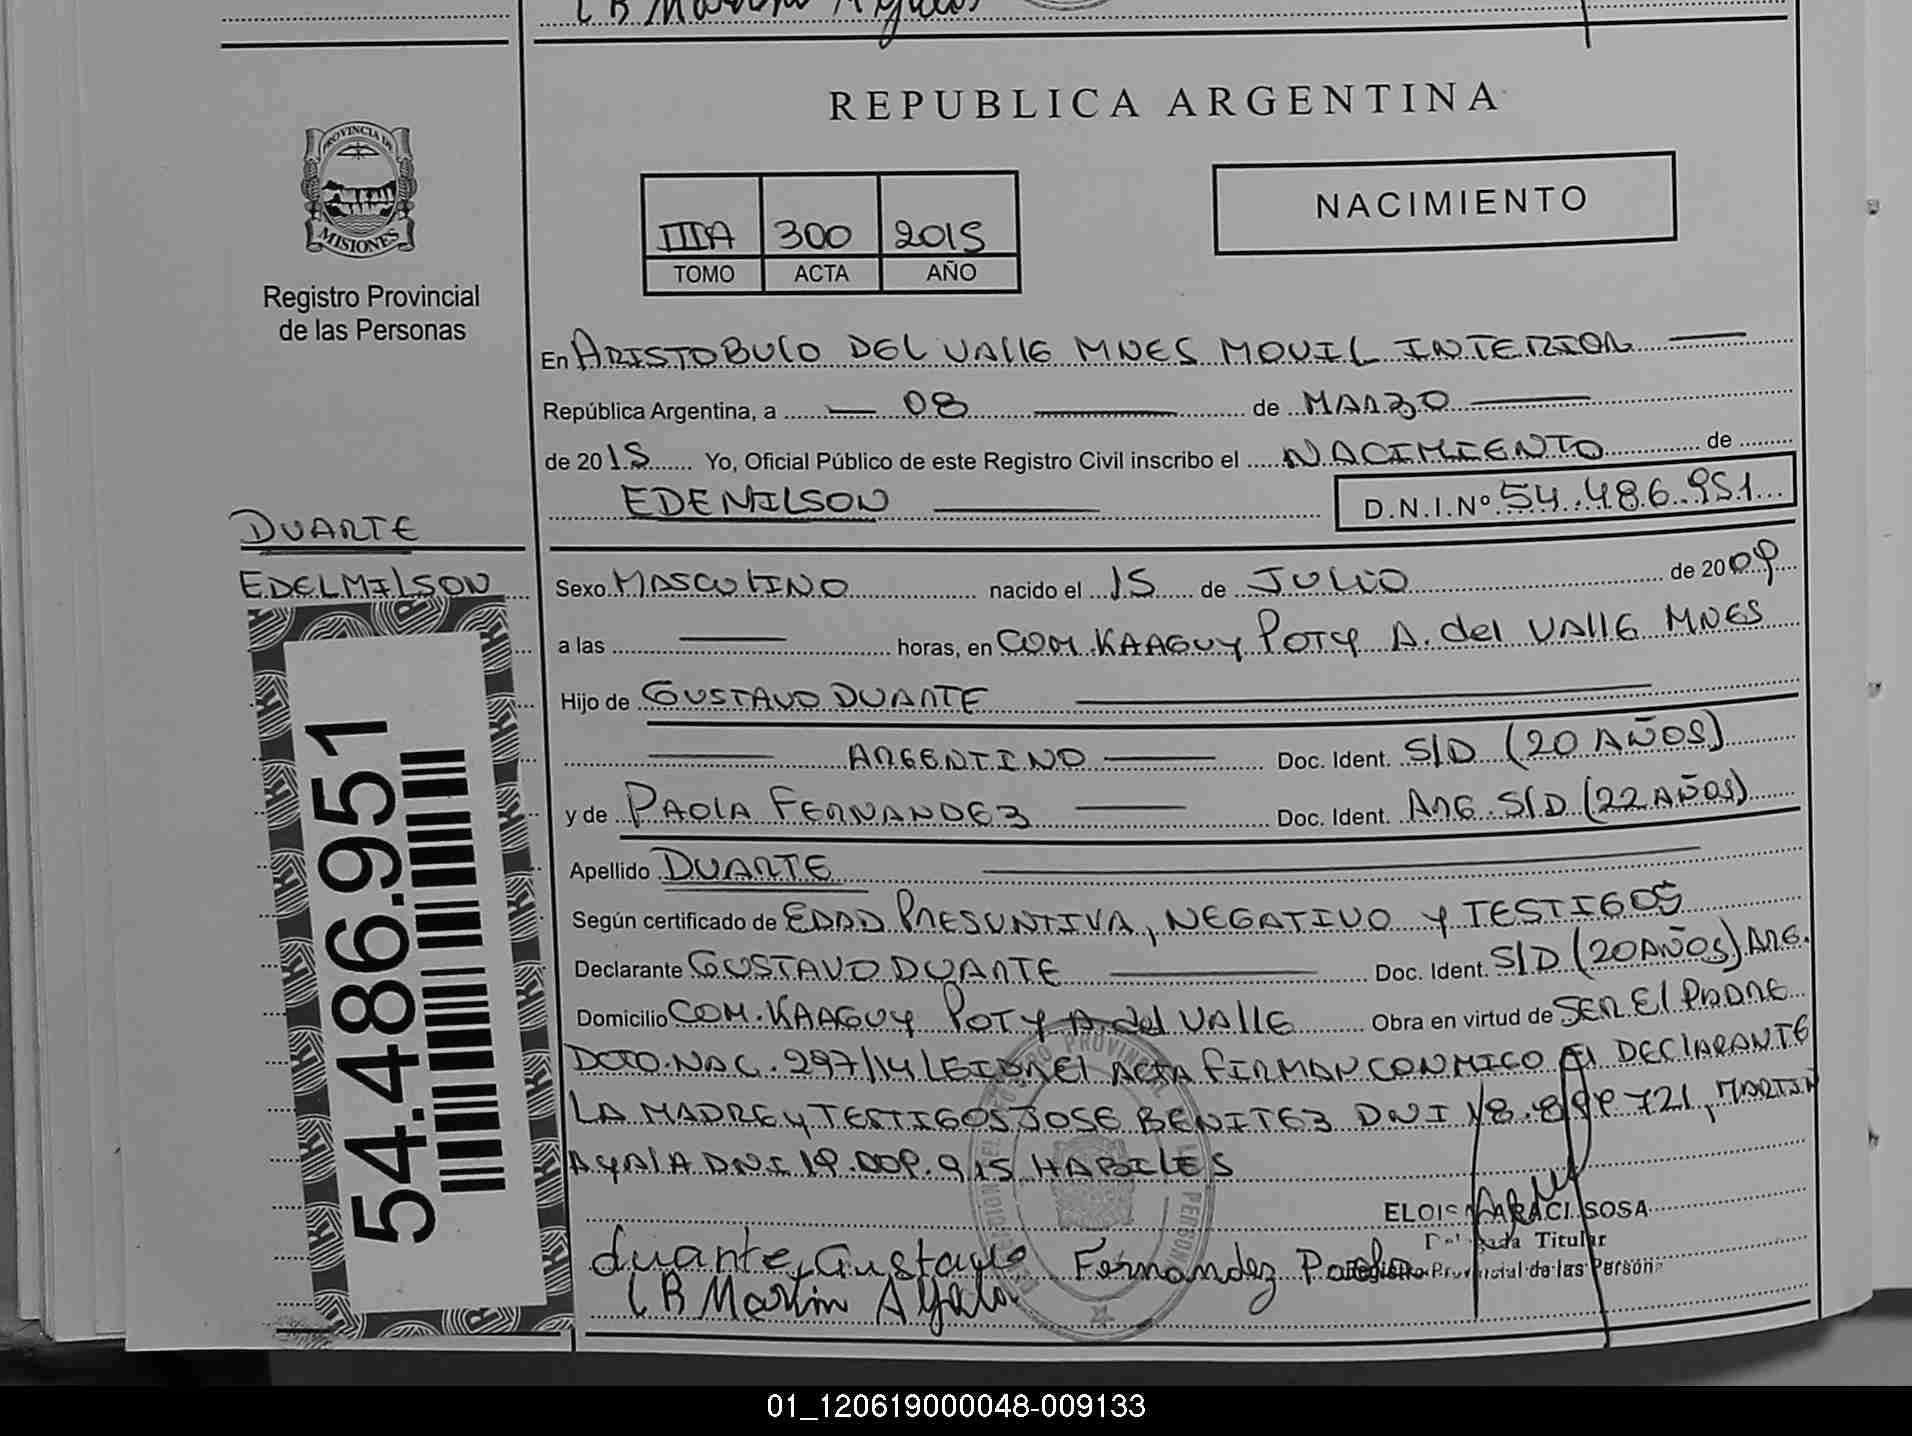 REPUBLICA ARGENTINA
PROVINCIA DE
MISIONES
Registro Provincial
de las Personas
NACIMIENTO
IIIA 300 2015
TOMO ACTA AÑO
En ARISTOBULO DEL VALLE MNES MOVIL INTERIOR
República Argentina, a 08 de MARZO
de 2015 Yo, Oficial Público de este Registro Civil inscribo el NACIMIENTO de
EDEMILSON D.N.I.Nº 54.486.951
DUARTE
EDELMILSON
54.486.951
Sexo MASCULINO nacido el 15 de JULIO de 2009
a las horas, en COM. KAAGUY POTY A. del VALLE MNES
Hijo de GUSTAVO DUARTE
ARGENTINO Doc. Ident. S/D (20 AÑOS)
y de PAOLA FERNANDEZ Doc. Ident. ARG. S/D (22 AÑOS)
Apellido DUARTE
Según certificado de EDAD PRESUNTIVA, NEGATIVO y TESTIGOS
Declarante GUSTAVO DUARTE Doc. Ident. S/D (20 AÑOS) ARG.
Domicilio COM. KAAGUY POTY A. del VALLE Obra en virtud de SER El PADRE
DCTO. NAC. 297/14 LEIDA El ACTA FIRMAN CONMIGO El DECLARANTE
LA MADRE y TESTIGOS JOSE BENITEZ DNI 18.899.721, MARTIN
AYALA DNI 19.009.915 HABILES
ARACI SOSA
Titular
Registro Provincial de las Personas
duarte, Gustavo Fernandez Paola
Martin Ayala
01_120619000048-009133